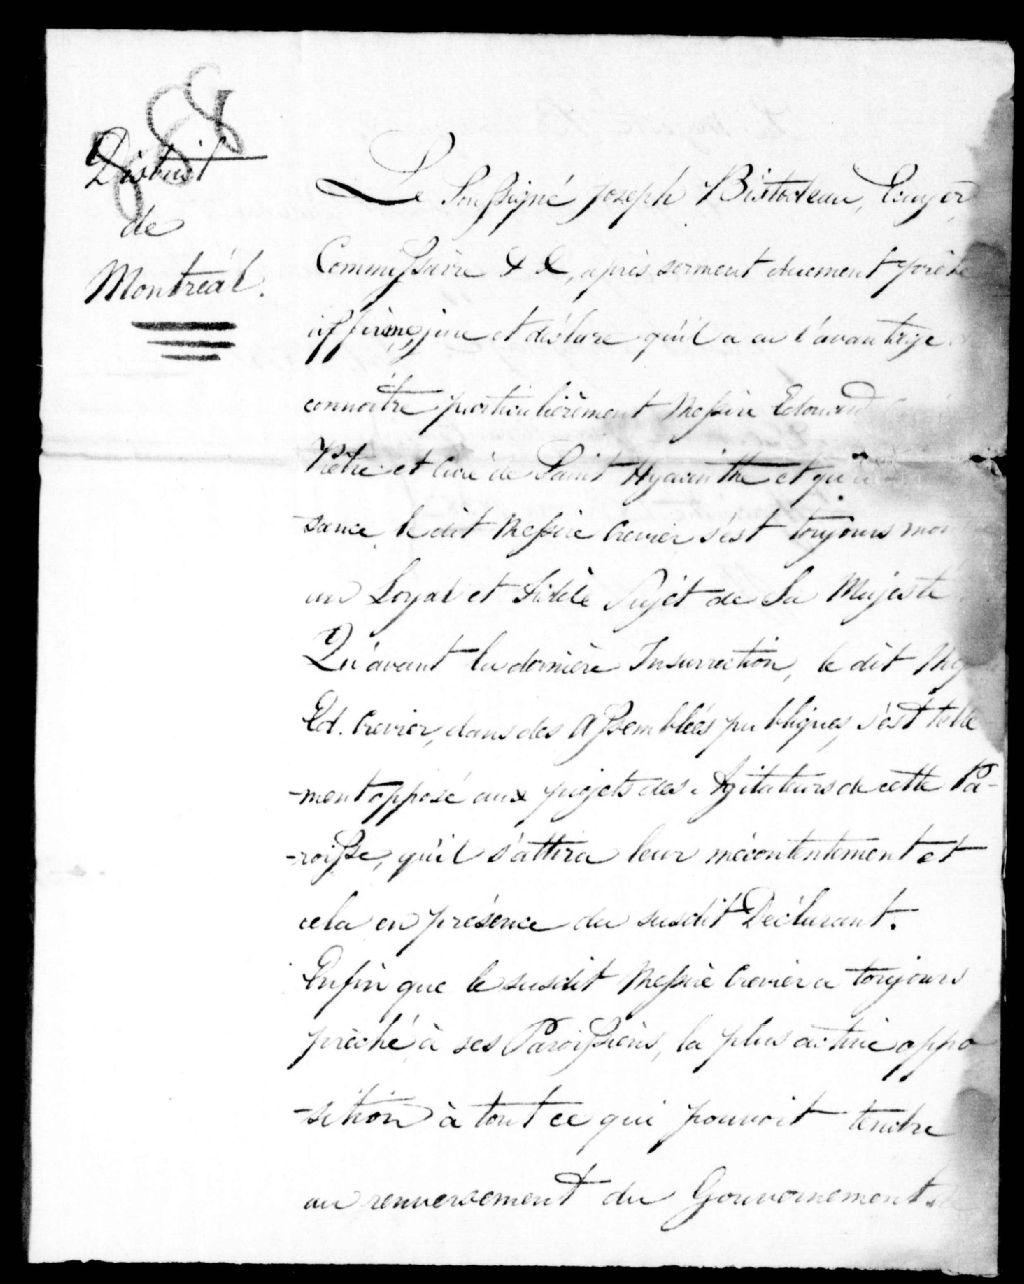 888
District
de
Montréal.
Le Soussigné Joseph Bistodeau, Ecuyer
Commissaire & &, après serment duement prêté
affirme, jure et déclare qu'il a eu l'avantage
connoître particulièrement Messire Edouard
Prêtre et Curé de Saint Hyacinthe et qu'à
-sance, le dit Messire Crevier s'est toujours mon
un Loyal et Fidèle Sujet de Sa Majesté
Qu'avant la dernière Insurrection, le dit
Ed. Crevier, dans des Assemblées publiques, s'est telle
-ment opposé aux projets des Agitateurs de cette Pa-
-roisse, qu'il s'attira leur mécontentement et
cela en présence du susdit Déclarant.
Enfin que le susdit Messire Crevier a toujours
prêché à ses Paroissiens, la plus active oppo
-sition à tout ce qui pouvoit tendre
au renversement du Gouvernement